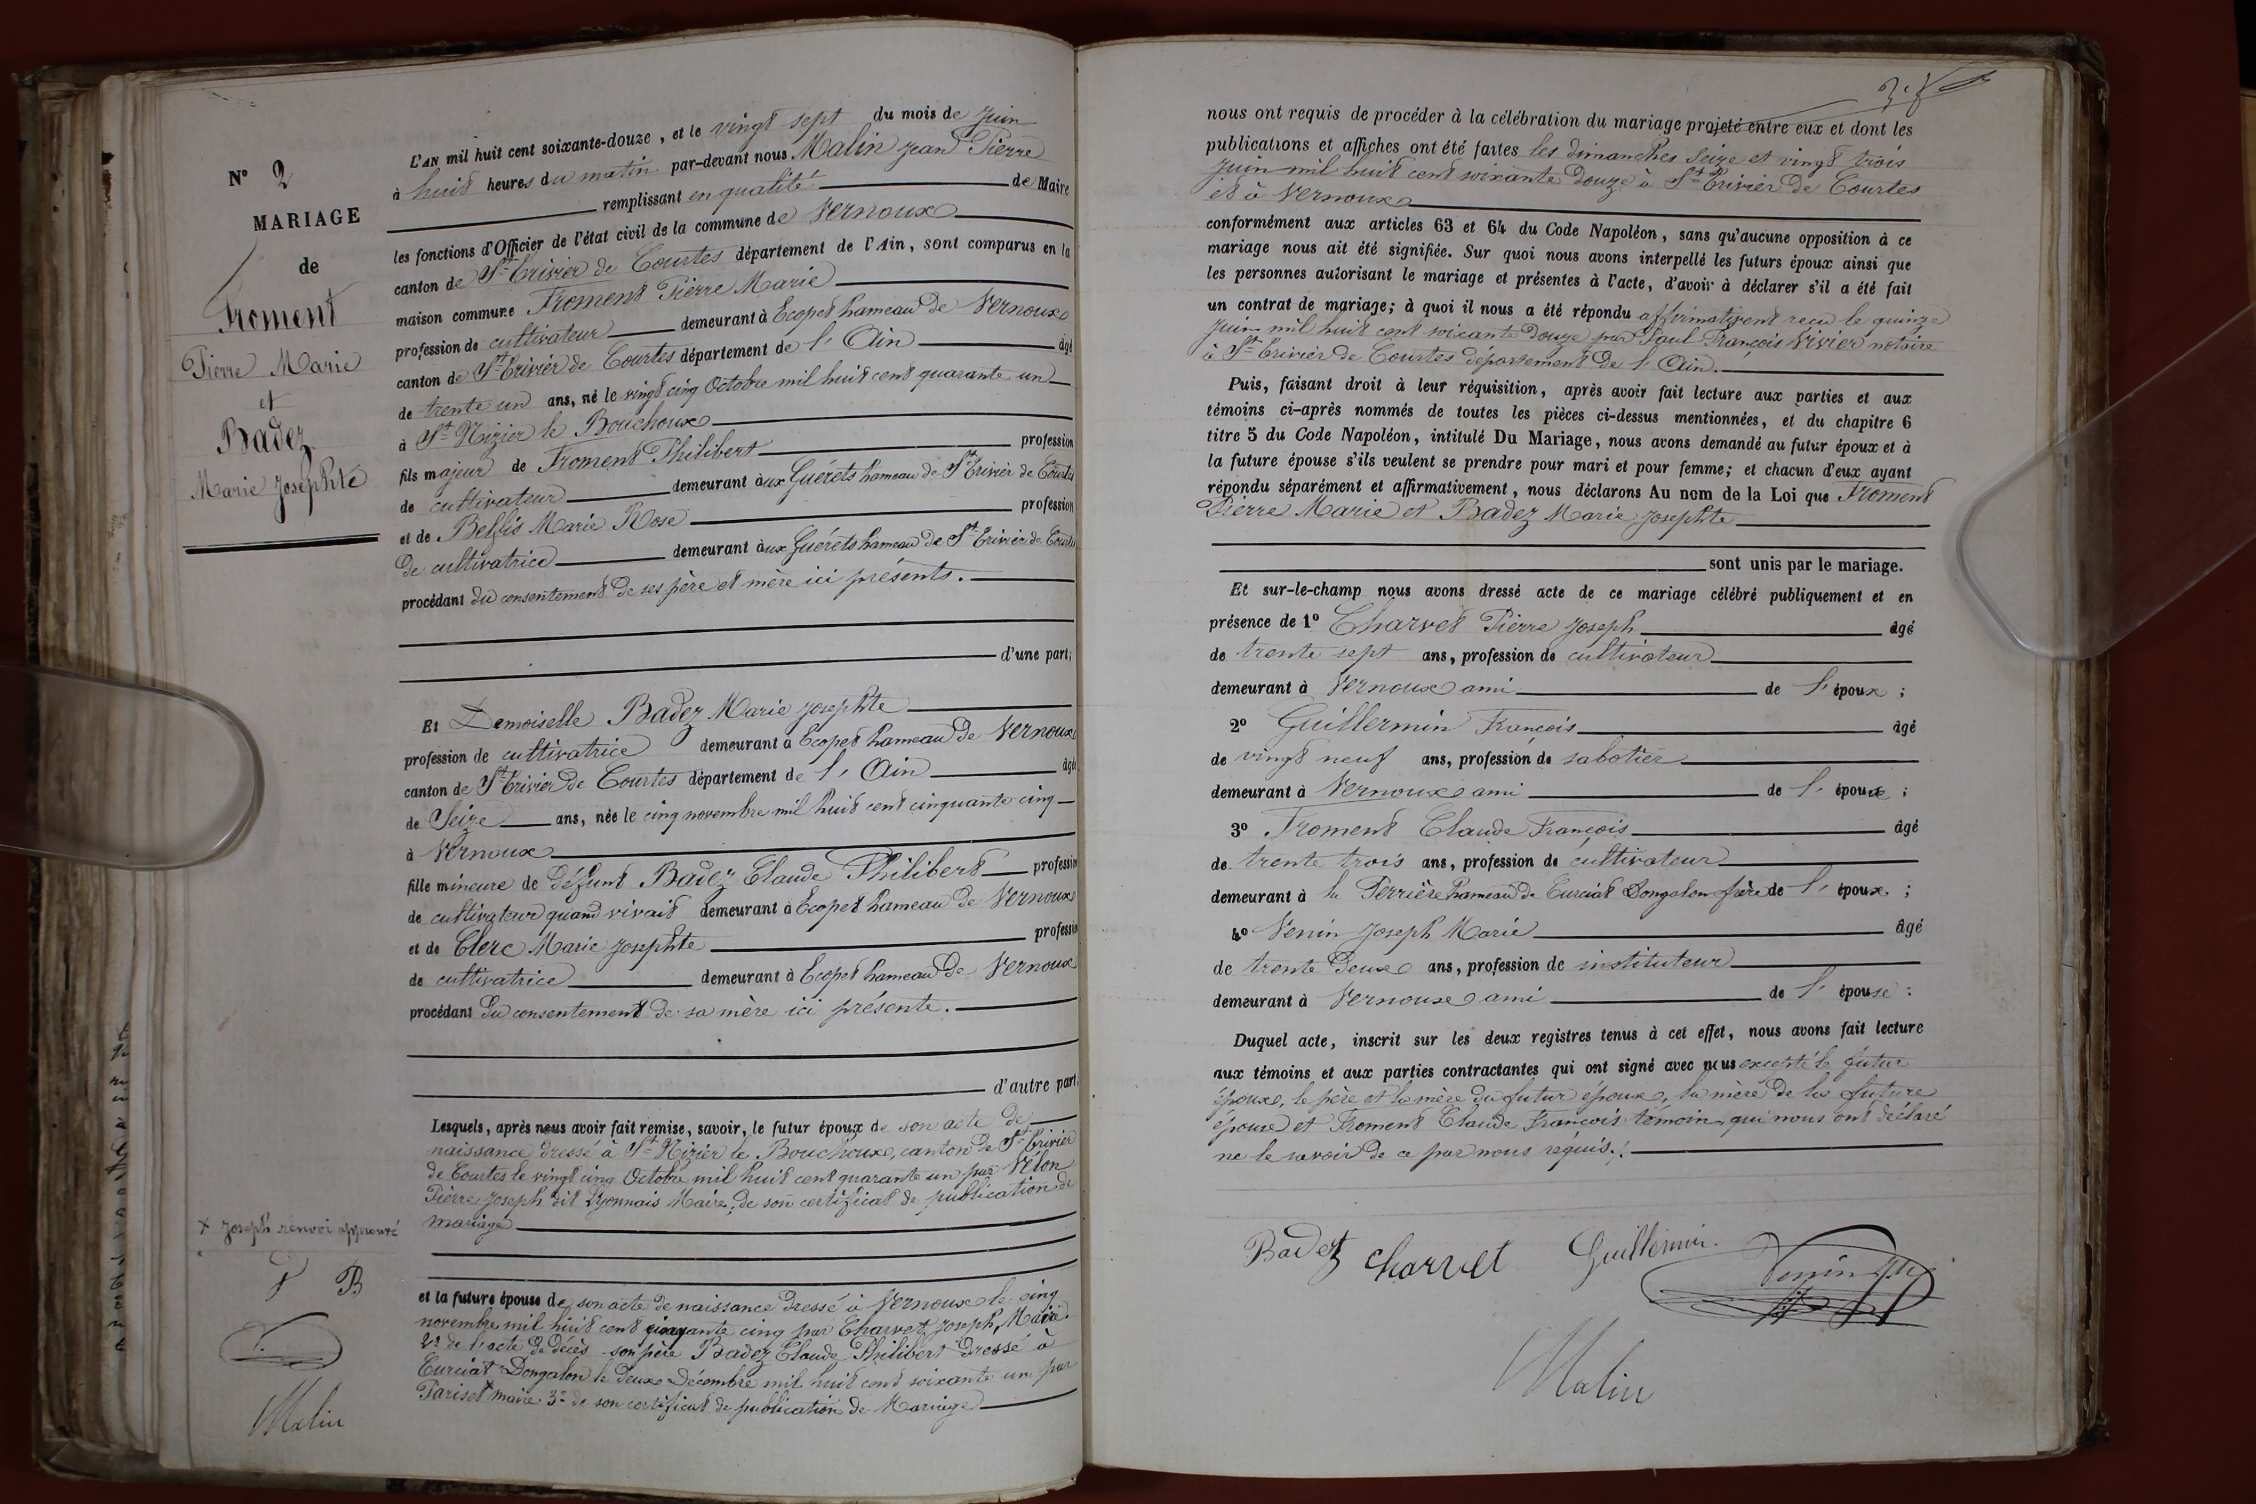 N° 2
MARIAGE
de
Froment
Pierre Marie
et
Badez
Marie Josephte
L'AN mil huit cent soixante-douze, et le vingt sept du mois de Juin
à huit heures du matin par-devant nous Malin Jean Pierre
remplissant en qualité de Maire
les fonctions d'Officier de l'état civil de la commune de Vernoux
canton de St Trivier de Courtes département de l'Ain, sont comparus en la
maison commune Froment Pierre Marie
profession de cultivateur demeurant à Ecopet hameau de Vernoux
canton de St Trivier de Courtes département de l'Ain âgé
de trente un ans, né le vingt cinq Octobre mil huit cent quarante un
à St Nizier le Bouchoux
fils majeur de Froment Philibert profession
de cultivateur demeurant aux Guérets hameau de St Trivier de Courtes
et de Marie Rose profession
de cultivatrice demeurant aux Guérets hameau de St Trivier de Courtes
procédant du consentement de ses père et mère ici présents.
d'une part;
Et Demoiselle Badez Marie Josephte
profession de cultivatrice demeurant à Ecopet hameau de Vernoux
canton de St Trivier de Courtes département de l'Ain âgée
de Seize ans, née le cinq novembre mil huit cent cinquante cinq
à Vernoux
fille mineure de défunt Badez Claude Philibert profession
de cultivateur quand vivait demeurant à Ecopet hameau de Vernoux
et de Clerc Marie Josephte profession
de cultivatrice demeurant à Ecopet hameau de Vernoux
procédant du consentement de sa mère ici présente.
d'autre part;
Lesquels, après nous avoir fait remise, savoir, le futur époux de son acte de
naissance dressé à St Nizier le Bouchoux, canton de St Trivier
de Courtes le vingt cinq Octobre mil huit cent quarante un par Vélon
Pierre Joseph dit Lyonnais Maire, de son certificat de publication de
mariage
et la future épouse de son acte de naissance dressé à Vernoux le cinq
novembre mil huit cent cinquante cinq par Charvet Joseph, Maire
2° de l'acte de décès son père Badez Claude Philibert dressé à
Curciat Dongalon le deux Décembre mil huit cent soixante un par
Pariset x maire 3° de son certificat de publication de Mariage
x Joseph renvoi approuvé
B
Malin
nous ont requis de procéder à la célébration du mariage projeté entre eux et dont les
publications et affiches ont été faites les dimanches Seize et vingt trois
Juin mil huit cent soixante douze à St Trivier de Courtes
et à Vernoux
conformément aux articles 63 et 64 du Code Napoléon, sans qu'aucune opposition à ce
mariage nous ait été signifiée. Sur quoi nous avons interpellé les futurs époux ainsi que
les personnes autorisant le mariage et présentes à l'acte, d'avoir à déclarer s'il a été fait
un contrat de mariage; à quoi il nous a été répondu affirmativent reçu le quinze
Juin mil huit cent soixante douze par Paul François Vivier notaire
à St Trivier de Courtes département de l'Ain.
Puis, faisant droit à leur réquisition, après avoir fait lecture aux parties et aux
témoins ci-après nommés de toutes les pièces ci-dessus mentionnées, et du chapitre 6
titre 5 du Code Napoléon, intitulé Du Mariage, nous avons demandé au futur époux et à
la future épouse s'ils veulent se prendre pour mari et pour femme; et chacun d'eux ayant
répondu séparément et affirmativement, nous déclarons Au nom de la Loi que Froment
Pierre Marie et Badez Marie Josephte
sont unis par le mariage.
Et sur-le-champ nous avons dressé acte de ce mariage célébré publiquement et en
présence de 1° Charvet Pierre Joseph âgé
de trente sept ans, profession de cultivateur
demeurant à Vernoux ami de l'époux ;
2° Guillermin François âgé
de vingt neuf ans, profession de sabotier
demeurant à Vernoux ami de l'époux ;
3° Froment Claude François âgé
de trente trois ans, profession de cultivateur
demeurant à la Perrière hameau de Curciat Dongalon frère de l'époux ;
4° Venin Joseph Marie âgé
de trente deux ans, profession de instituteur
demeurant à Vernoux ami de l'épouse :
Duquel acte, inscrit sur les deux registres tenus à cet effet, nous avons fait lecture
aux témoins et aux parties contractantes qui ont signé avec nous excepté le futur
époux, le père et la mère du futur époux, la mère de la future
épouse et Froment Claude François témoin qui nous ont déclaré
ne le savoir de ce par nous requis.
Badez Charvet Guillermin Venin
Malin